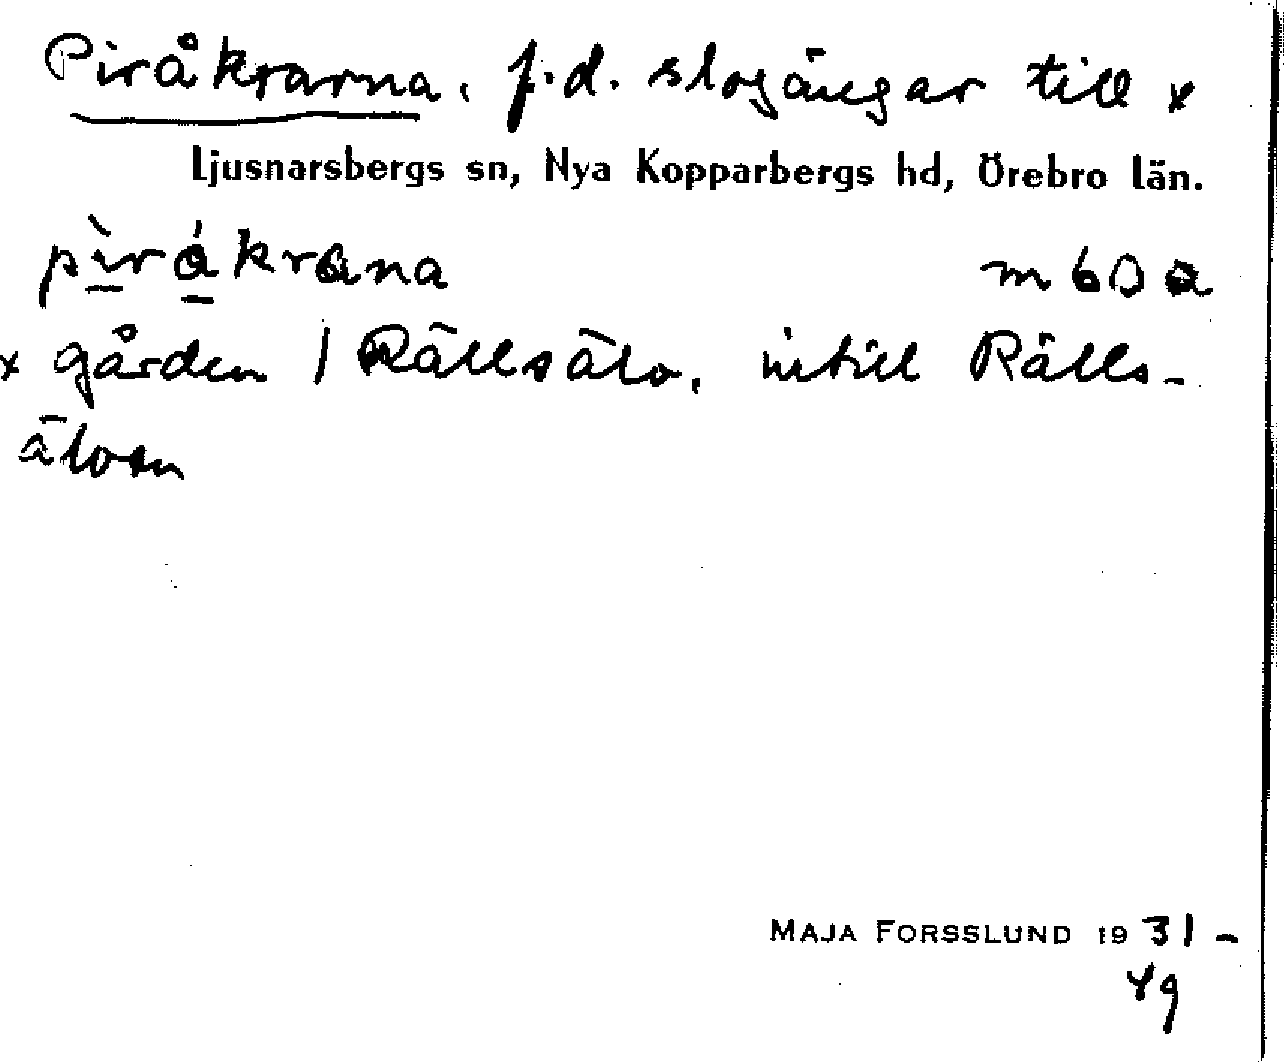 Piråkrarna, f.d. slogängar till x
Ljusnarsbergs sn, Nya Kopparbergs hd, Örebro län.
pìrákrana m 60 a
x gården 1 Rällsälv, intill Rälls-
älven
MAJA FORSSLUND 1931-
49